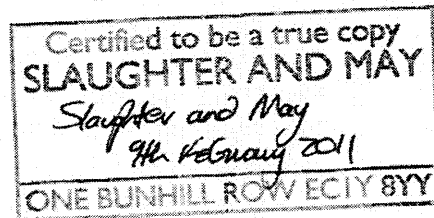 Certified to be a true copy
SLAUGHTER AND MAY
Slaughter and May
9th February 2011
ONE BUNHILL ROW EC1Y 8YY